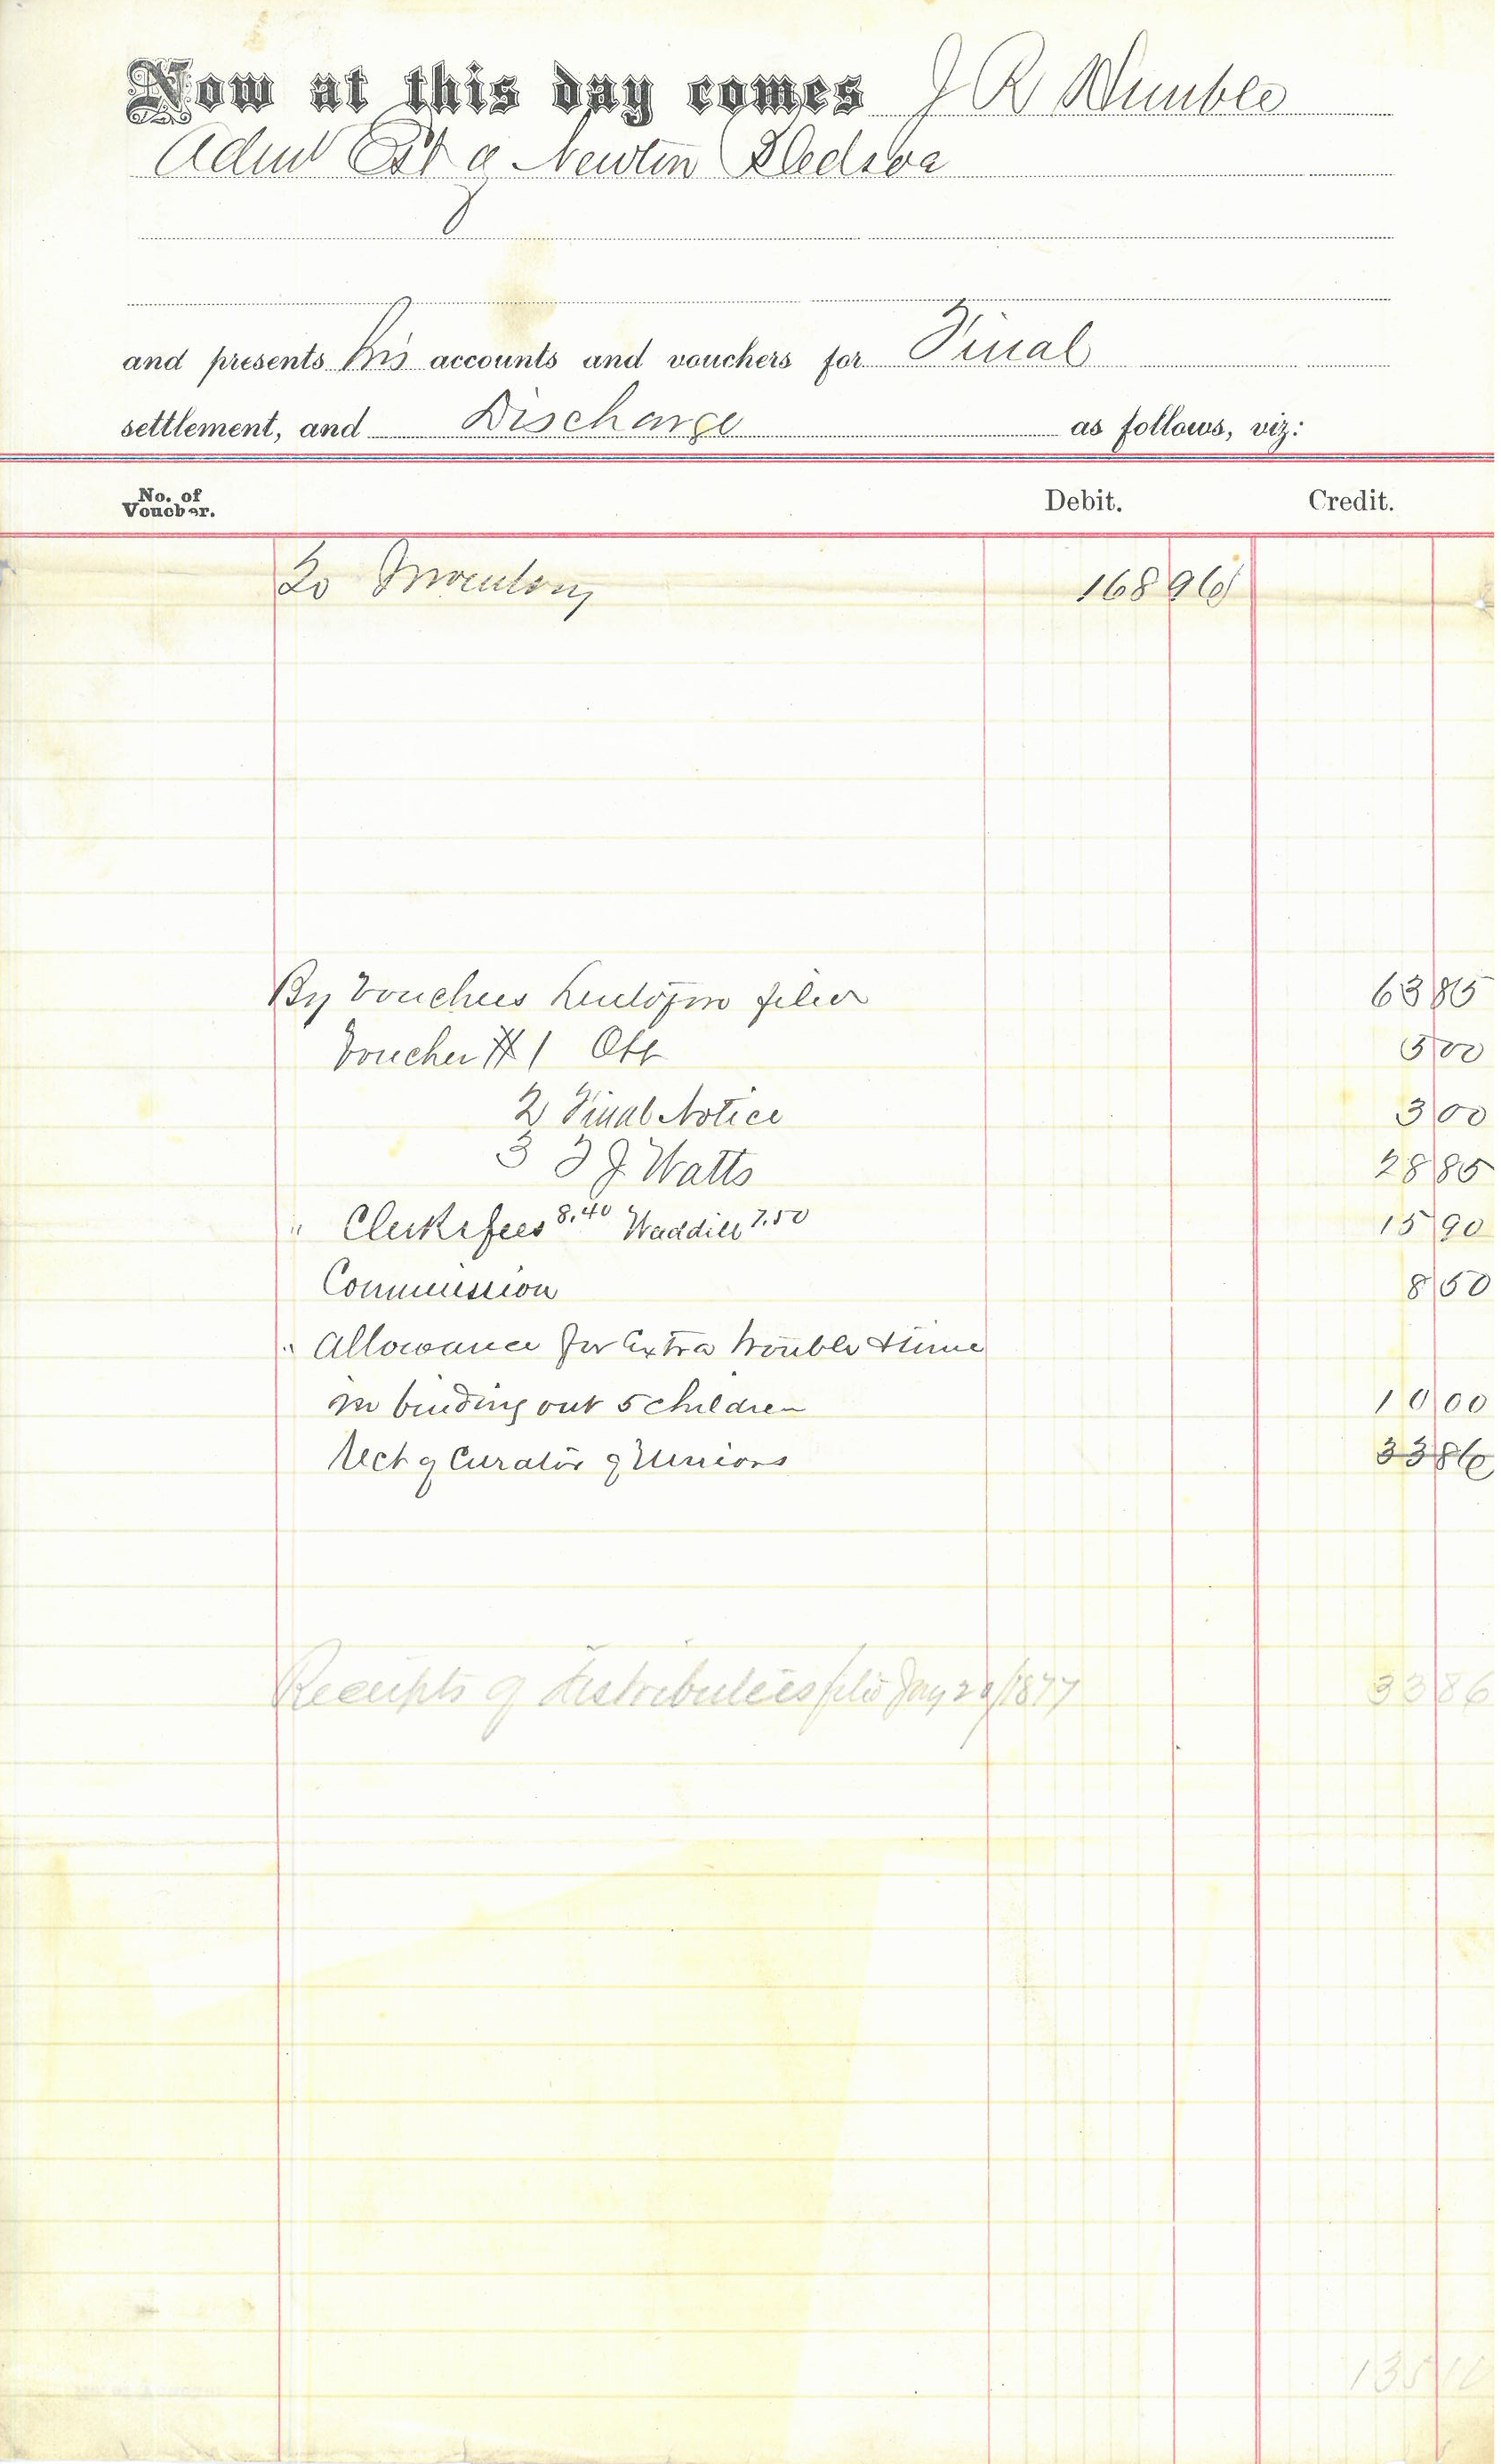 Now at this day comes J R Wimble
Adm Est of Newton Bledsoe
and presents his accounts and vouchers for Final
settlement, and Discharge as follows, viz:
No. of Voucher. Debit. Credit.
To Inventory 168 96
By Vouchers heretofore filed 63 85
Voucher # 1 5 00
2 Final Notice 3 00
3 T J Watts 28 85
" Clerks fees 8.40 Waddill 7.50 15 90
Commission 8 50
" Allowance for Extra trouble & time
in binding out 5 children 10 00
Rect of Curator of Minors 33 86
Receipts of distributees filed Jany 29/1877 33 86
135 10